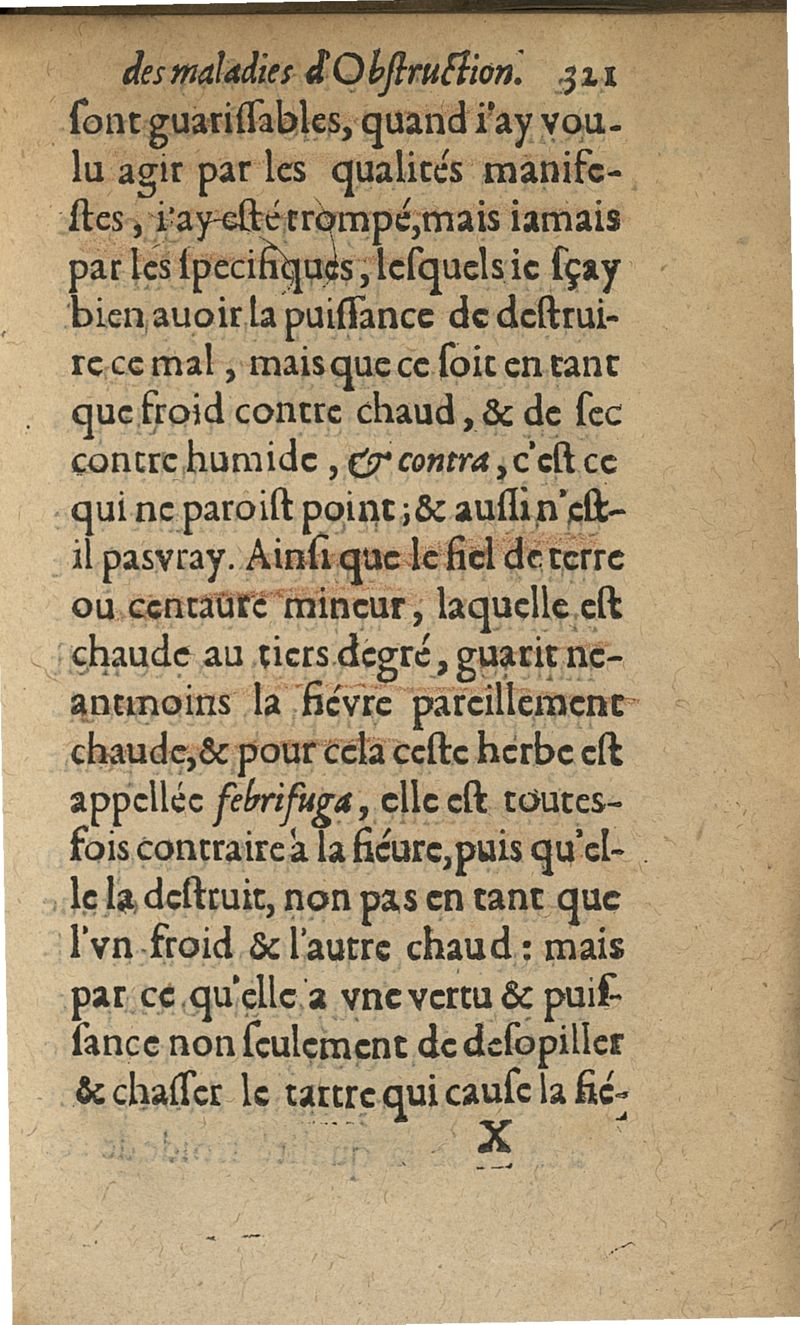 des maladies d'Obſtruction. 321
ſont guariſſables, quand i'ay vou-
lu agir par les qualités manife-
ſtes, i'ay eſté trompé, mais iamais
par les ſpecifiques, leſquels ie ſçay
bien auoir la puiſſance de deſtrui-
re ce mal, mais que ce ſoit en tant
que froid contre chaud, & de ſec
contre humide, & contra, c'eſt ce
qui ne paroiſt point; & auſſi n'eſt-
il pas vray. Ainſi que le fiel de terre
ou centaure mineur, laquelle eſt
chaude au tiers degré, guarit ne-
antmoins la fiévre pareillement
chaude, & pour cela ceſte herbe eſt
appellée febrifuga, elle eſt toutes-
fois contraire à la fiéure, puis qu'el-
le la deſtruit, non pas en tant que
l'vn froid & l'autre chaud: mais
par ce qu'elle a vne vertu & puiſ-
ſance non ſeulement de deſopiller
& chaſſer le tartre qui cauſe la fié-
X